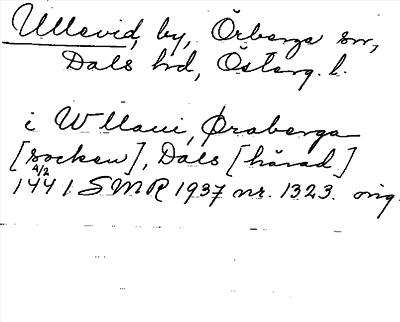 Ullevid, by, Örberga sn,
Dals hd, Österg. l.
i Wllaui, Øraberga
[socken], Dals [härad]
4/2
1441. SMR 1937 nr. 1323. orig.